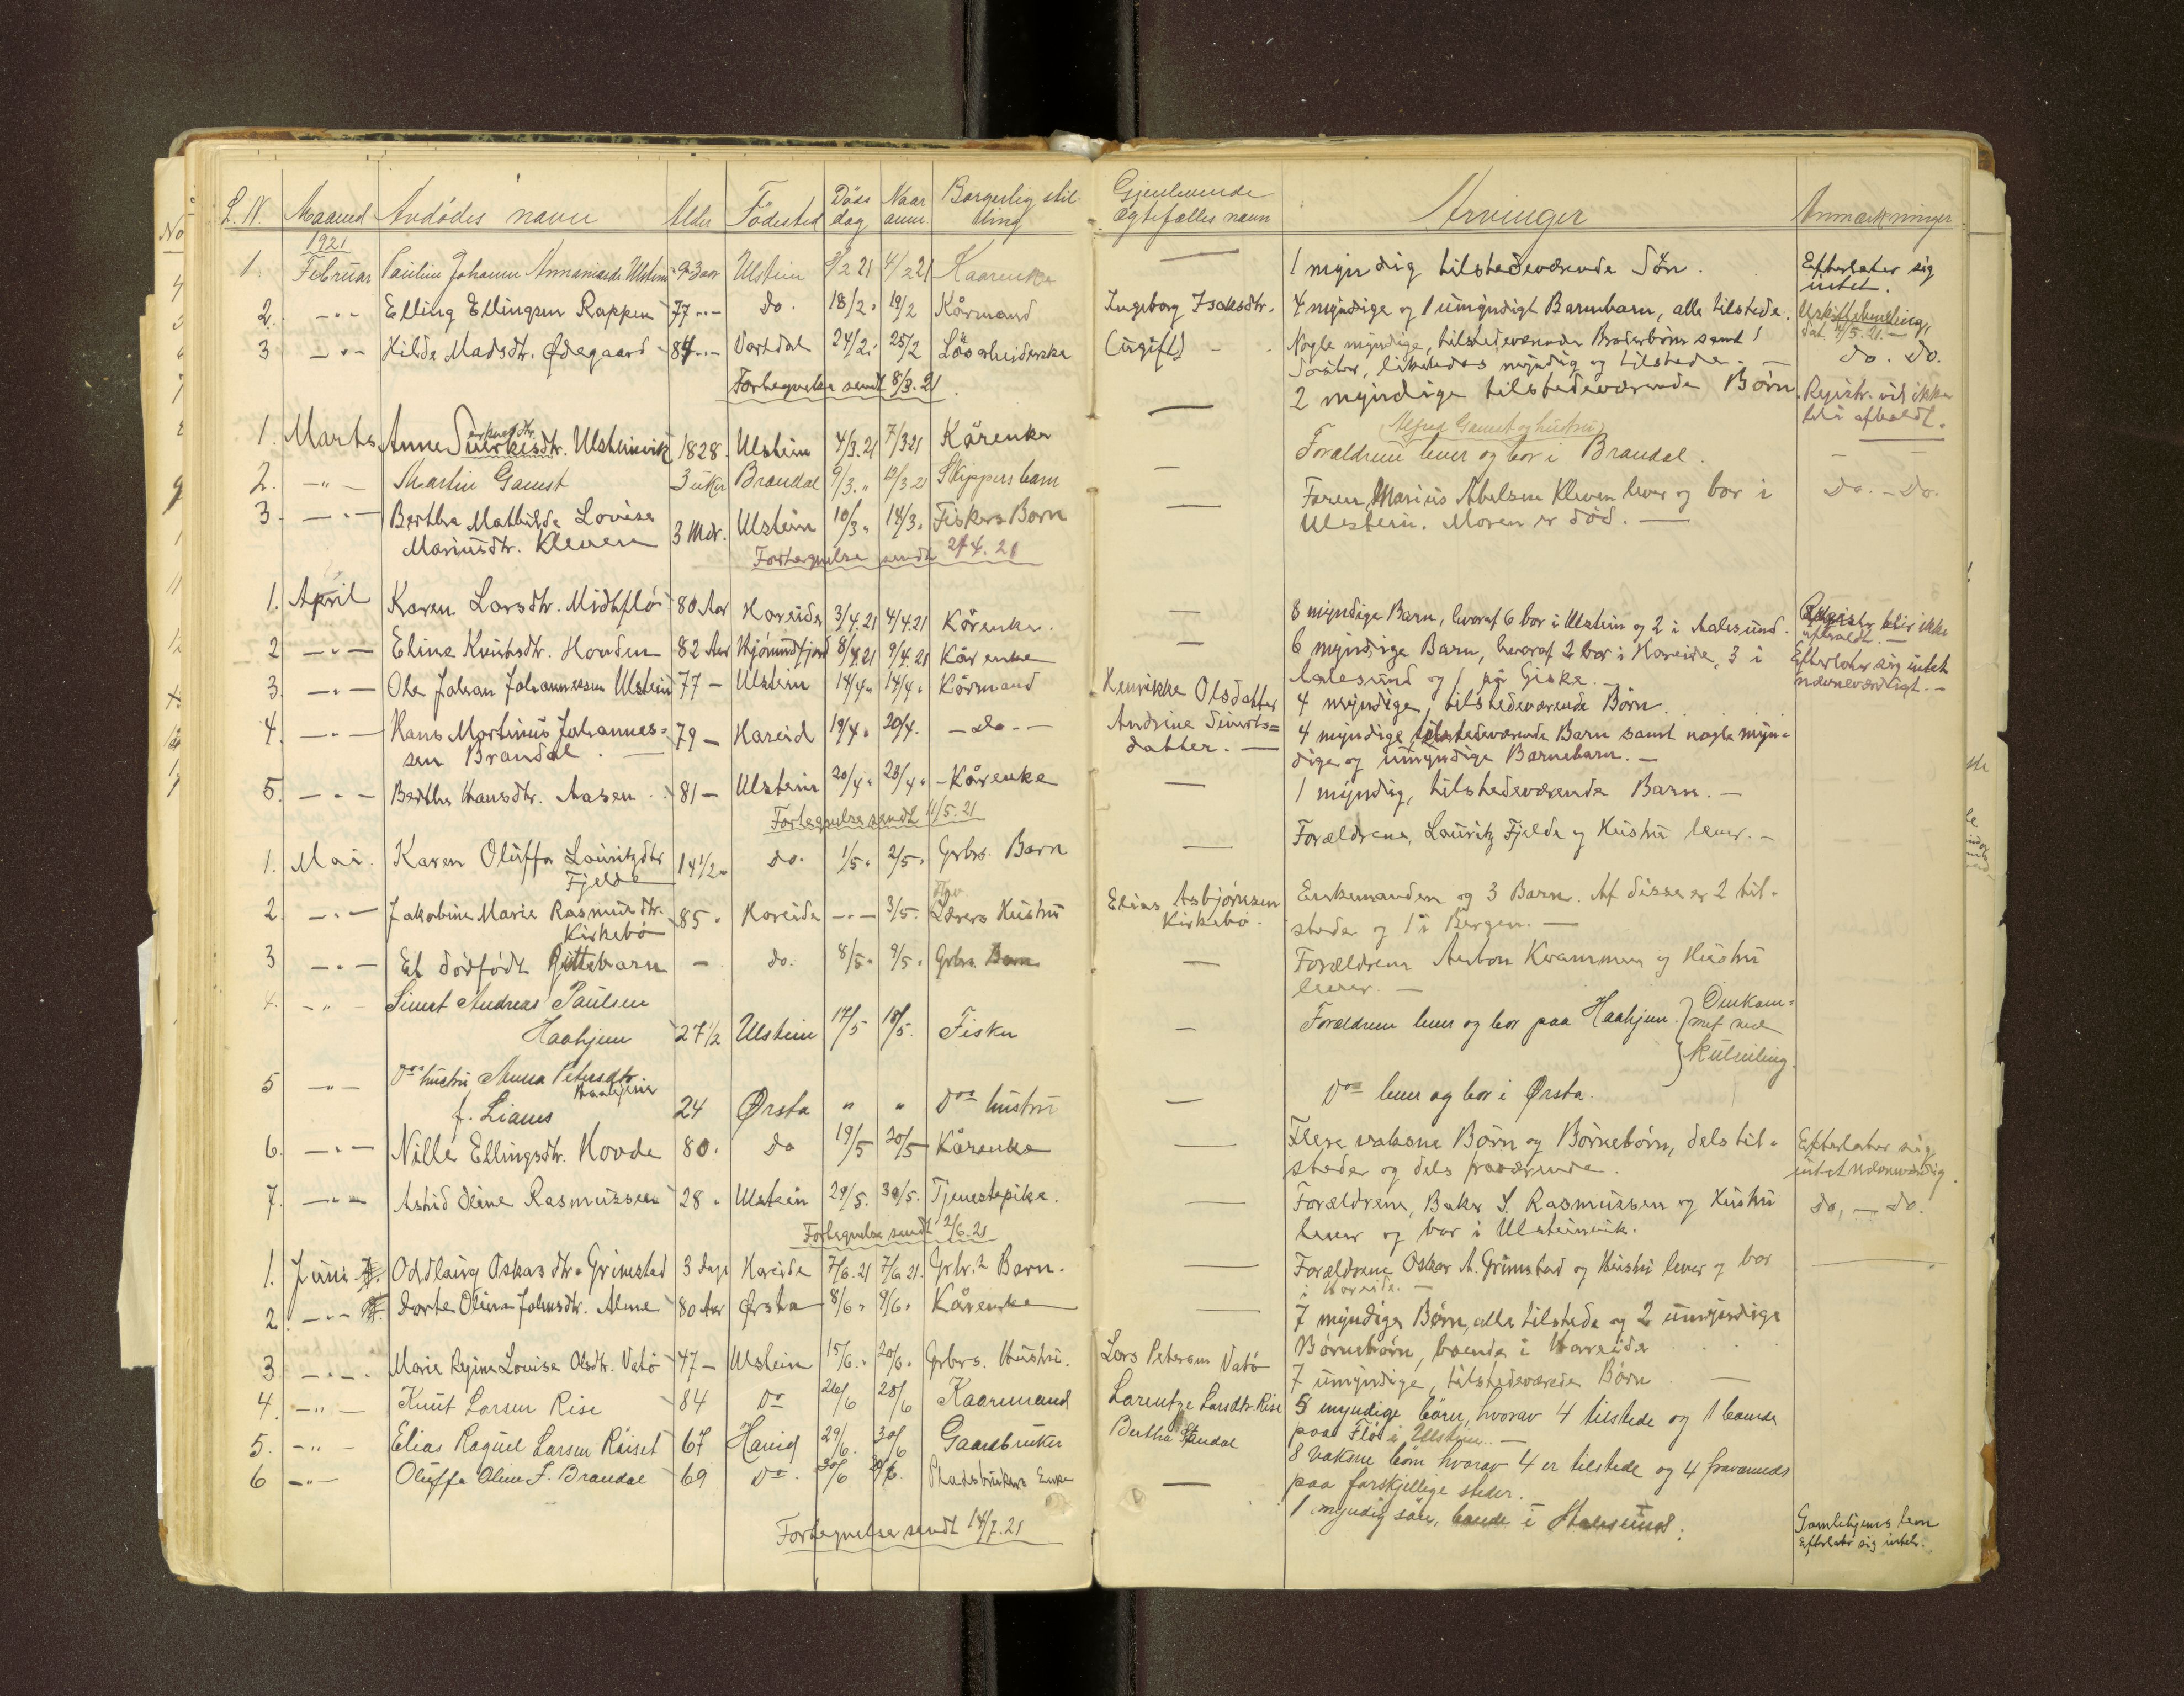 L. N. Maaned Avdødes navn Alder Fødested Døds dag Naar anm. Borgerlig stilling Gjenlevende ægtefælles navn Arvinger Anmerkninger
1921
1. Februar Pauline Johanne Ulstein 93 aar Ulstein 3/2 21 4/2 21 Kaarenke — 1 myndig tilstedeværende Søn. Efterlater sig intet.
2. -"- Elling Ellingsen Rappen 77 -"- Do. 18/2 " 19/2 Kårmand Ingeborg Isaksdtr. 4 myndige og 1 umyndigt Barnebarn, alle tilstede. Uskiftebevilling, dat. 4/5.21. —
3 -"- Hilde Madsdtr. Ødegaard 84 -"- Vartdal 24/2 " 25/2 Løsarbeiderske (ugift) - Nogle myndige, tilstedeværende Broderbørn samt 1
Søster, likeledes myndig og tilstede. — Do. Do.
Fortegnelse sendt 8/3.21
1. Marts Anne Siverksdtr. Ulsteinvik 1828. Ulstein 4/3.21 7/3.21 Kårenke — 2 myndige tilstedeværende Børn. Registr. vil ikke bli afholdt.
Alfred Gamst og hustru
2. -"- Martin Gamst 3 uker Brandal 9/3. " 12/3 21 Skippers barn — Forældrene lever og bor i Brandal. — —
3. -"- Berthe Mathilde Lovise
Mariusdtr. Kleven 3 Mdr. Ulstein 10/3 " 14/3 " Fiskers Barn — Faren Marius Abelsen Kleven lever og bor i
Ulstein. Moren er død. — Do. - Do.
Fortegnelse sendt 2/4.21
1. April Karen Larsdtr. Midtflø 80 Aar Hareide 3/4.21 4/4.21 Kårenke. — 8 myndige Barn, hvoraf 6 bor i Ulstein og 2 i Aalesund. Registr. blir ikke afholdt. —
2 -"- Eline Knutsdtr. Hovden 82 Aar Hjørundfjord 8/4.21 9/4.21 Kårenke — 6 myndige Barn, hvoraf 2 bor i Hareide, 3 i
Aalesund og 1 på Giske. — Efterlater sig intet nævneværdigt. —
3. -"- Ole Johan Johannessen Ulstein 77 - Ulstein 14/4 " 14/4 " Kårmand Henrikke Olsdatter 4 myndige, tilstedeværende Børn.
4. -"- Hans Martinus Johannes-
sen Brandal. — 79 - Hareid 19/4 " 20/4. - do - Andrine Siverts=
datter. — 4 myndige, tilstedeværende Barn samt nogle myn-
dige og umyndige Barnebarn. —
5. -"- Berthe Hansdtr. Aasen 81 - Ulstein 20/4 " 23/4 " - Kårenke — 1 myndig, tilstedeværende Barn. —
Fortegnelse sendt 4/5.21
1. Mai. Karen Oluffa Lauritzdtr
Fjelde 14 1/2 " do. 1/5 " 2/5 " Grbrs. Barn — Forældrene, Lauritz Fjelde og Hustru lever. —
2. -"- Jakobine Marie Rasmusdtr.
Kirkebø 85 " Hareide -"- 3/5 " Lærers Hustru Elias Asbjørnsen
Kirkebø. Enkemanden og 3 Barn. Af disse er 2 til-
stede og 1 i Bergen. —
3 -"- Et dødfødt Pikebarn - do. 8/5 " 9/5 " Grbrs. Barn — Forældrene Anton Kvammen og Hustru
lever. —
4. -"- Simet Andreas Paulsen
Haahjem 27 1/2 Ulstein 17/5 18/5. Fisker — Forældrene lever og bor paa Haahjem. } Omkom-
met ved
kulseiling.
5 -"- Ds hustru Anna Petersdtr.
Haahjem
f. Liaus 24 Ørsta " " Ds hustru — Do lever og bor i Ørsta.
6. -"- Nille Ellingsdtr. Hovde 80. Do 19/5 20/5 Kårenke — Flere voksne Børn og Børnebørn, dels til-
stede og dels fraværende. Efterlater sig intet nævneværdig.
7. -"- Astrid Oline Rasmussen 28 " Ulstein 29/5. 30/5. Tjenestepike. — Forældrene, Baker S. Rasmussen og Hustru
lever og bor i Ulsteinvik. Do. — Do.
Fortegnelse sendt 2/6.21
1. Juni Oddlaug Oskarsdtr. Grimstad 3 Dage Hareide 7/6.21 7/6 21. Grbr.s Barn. — Forældrene Oskar A. Grimstad og Hustru lever og bor
i Hareide. —
2. -"- Dorte Olina Johnsdtr. Alme 80 Aar Ørsta 8/6 " 9/6 " Kårenke — 7 myndige Børn, alle tilstede og 2 umyndige
Børnebørn, boende i Hareide
3 -"- Marie Regine Lovise Olsdtr. Vatø 47 - Ulstein 15/6. " 20/6. Grbrs. Hustru. Lars Petersen Vatø 7 umyndige, tilstedeværende Børn. —
4. -"- Knut Larsen Rise 84 Do 26/6 28/6 Kaarmand Larentze Larsdtr. Rise 5 myndige børn, hvorav 4 tilstede og 1 boende
paa Flø i Ulstein. —
5. -"- Elias Raquel Larsen Røiset 67 Hareid 29/6. 30/6 Gaardbruker Bertha Standal 8 vaksne børn hvorav 4 er tilstede og 4 fraværende
paa forskjellige steder.
6 -"- Oluffa Oline J. Brandal 69 Do. 30/6 Pladsbrukers Enke — 1 myndig søn, boende i Aalesund. Gamlehjems lem
Efterlater sig intet.
Fortegnelse sendt 14/7.21